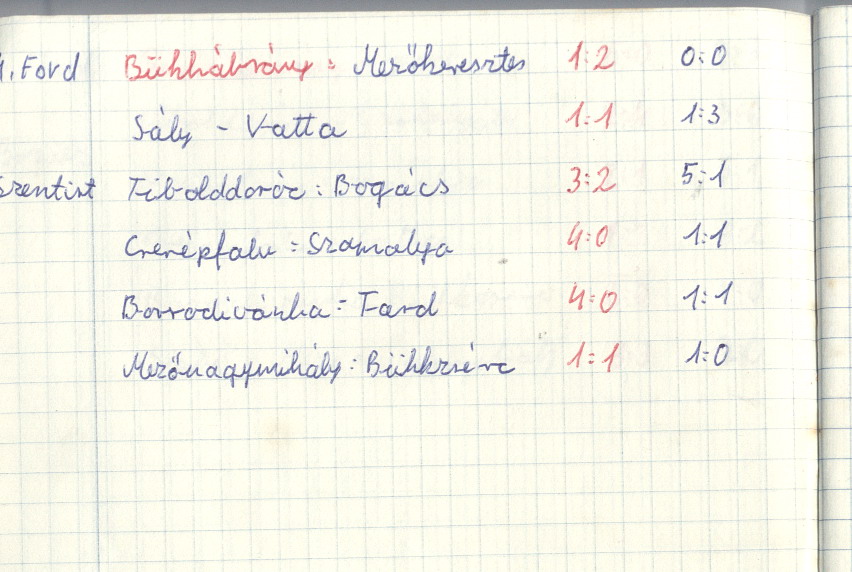 1. Ford Bükkábrány : Mezőkeresztes 1:2 0:0
Sály - Vatta 1:1 1:3
Szentist Tibolddaróc : Bogács 3:2 5:1
Cserépfalu : Szomolya 4:0 1:1
Borsodivánka : Tard 4:0 1:1
Mezőnagymihály : Bükkzsérc 1:1 1:0